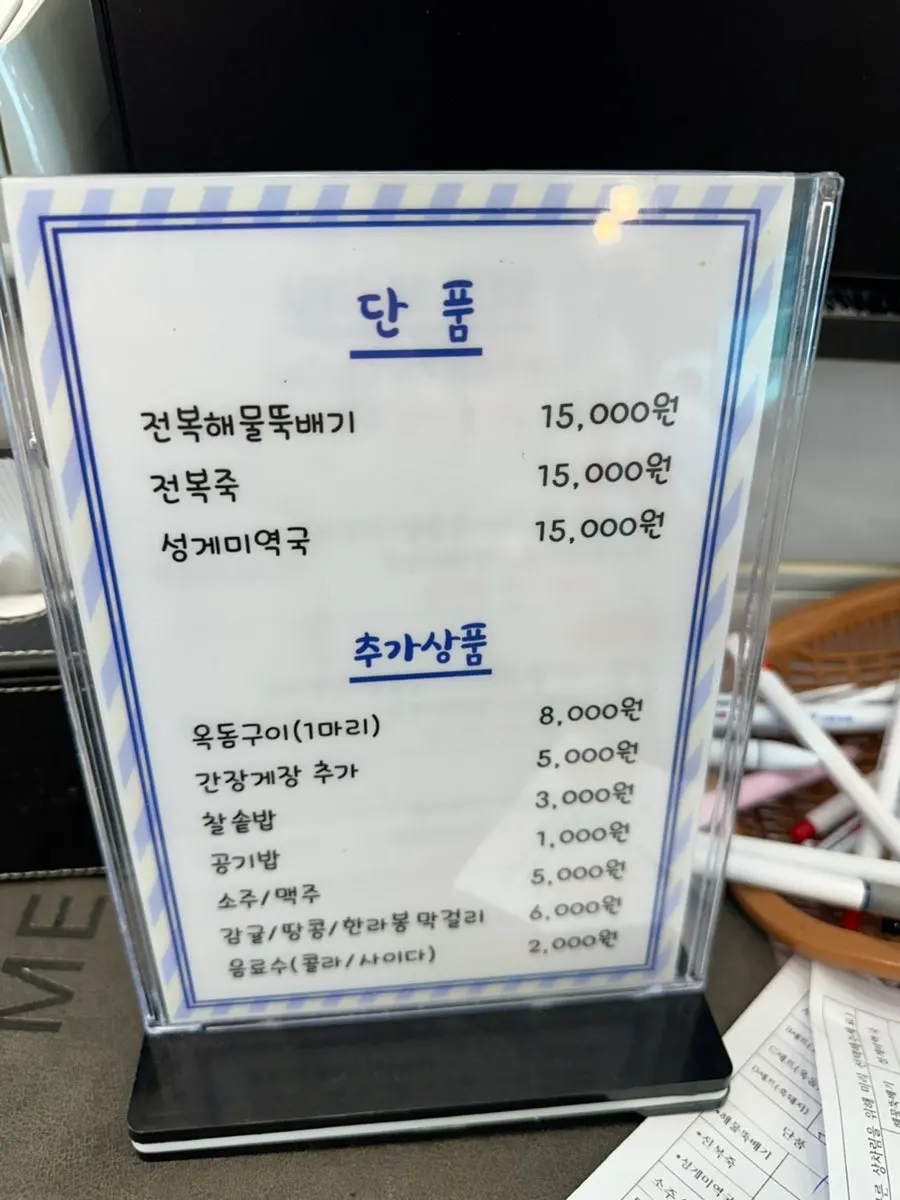 단 품
전복해물뚝배기 15,000원
전복죽 15,000원
성게미역국 15,000원
추가상품
옥돔구이(1마리) 8,000원
간장게장 추가 5,000원
찰솥밥 3,000원
공기밥 1,000원
소주/맥주 5,000원
감귤/땅콩/한라봉 막걸리 6,000원
음료수(콜라/사이다) 2,000원
ME
단품
•해물뚝배기
•전복죽
•성게미역국
소주/
성게미역국
해물뚝배기